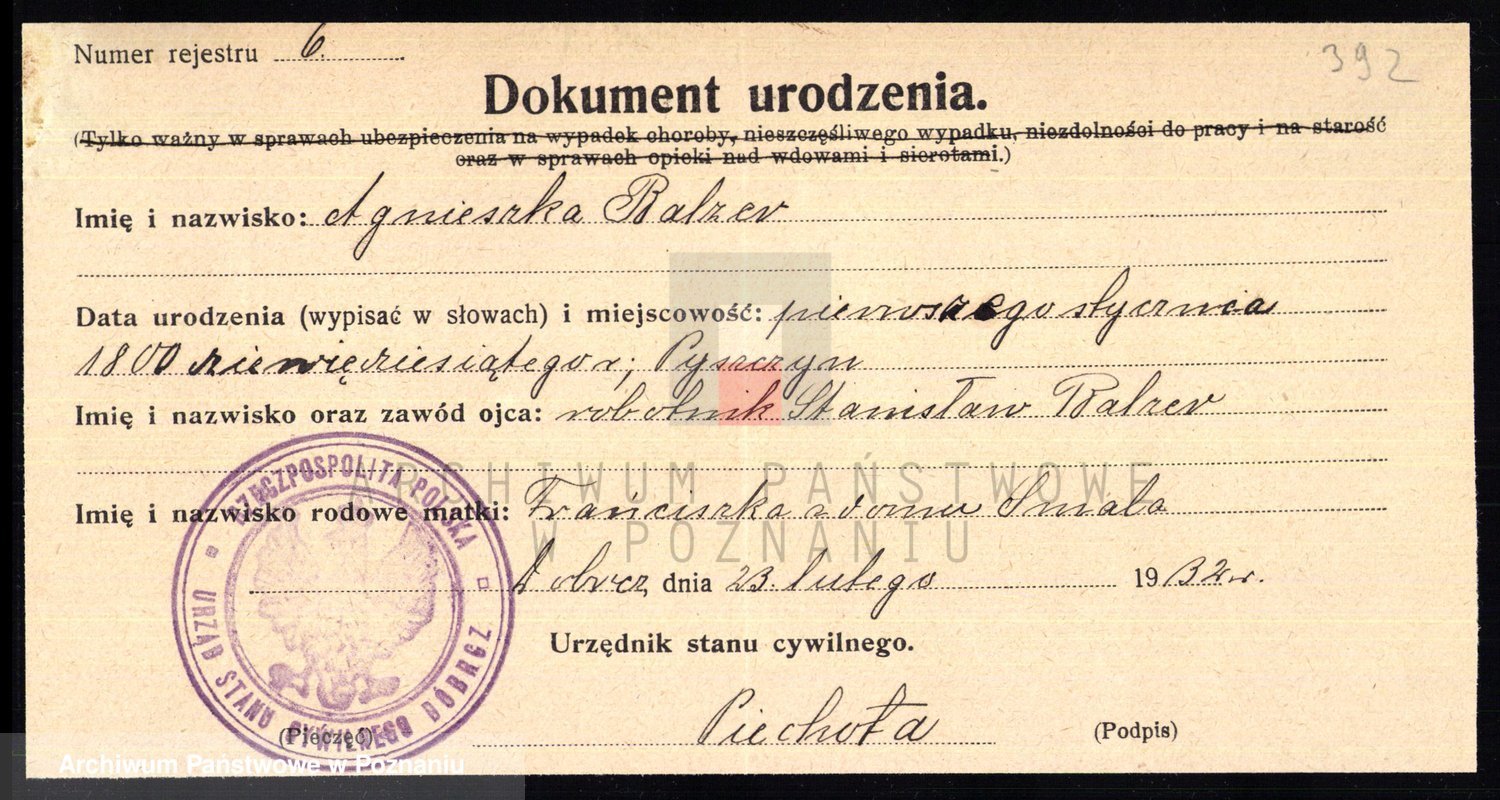 Numer rejestru 6.
392
Dokument urodzenia.
(Tylko ważny w sprawach ubezpieczenia na wypadek choroby, nieszczęśliwego wypadku, niezdolności do pracy i na starość
oraz w sprawach opieki nad wdowami i sierotami.)
Imię i nazwisko: Agnieszka Balzer
Data urodzenia (wypisać w słowach) i miejscowość: pierwszego stycznia
1800 dziewięćdziesiątego r; Pyszczyn
Imię i nazwisko oraz zawód ojca: robotnik Stanisław Balzer
Imię i nazwisko rodowe matki: Franciszka z domu Smala
Dobrcz, dnia 23. lutego 1932 r.
Urzędnik stanu cywilnego.
Piechota (Podpis)
(Pieczęć)
RZECZPOSPOLITA POLSKA
URZĄD STANU CYWILNEGO DÓBRCZ
ARCHIWUM PAŃSTWOWE
W POZNANIU
Archiwum Państwowe w Poznaniu